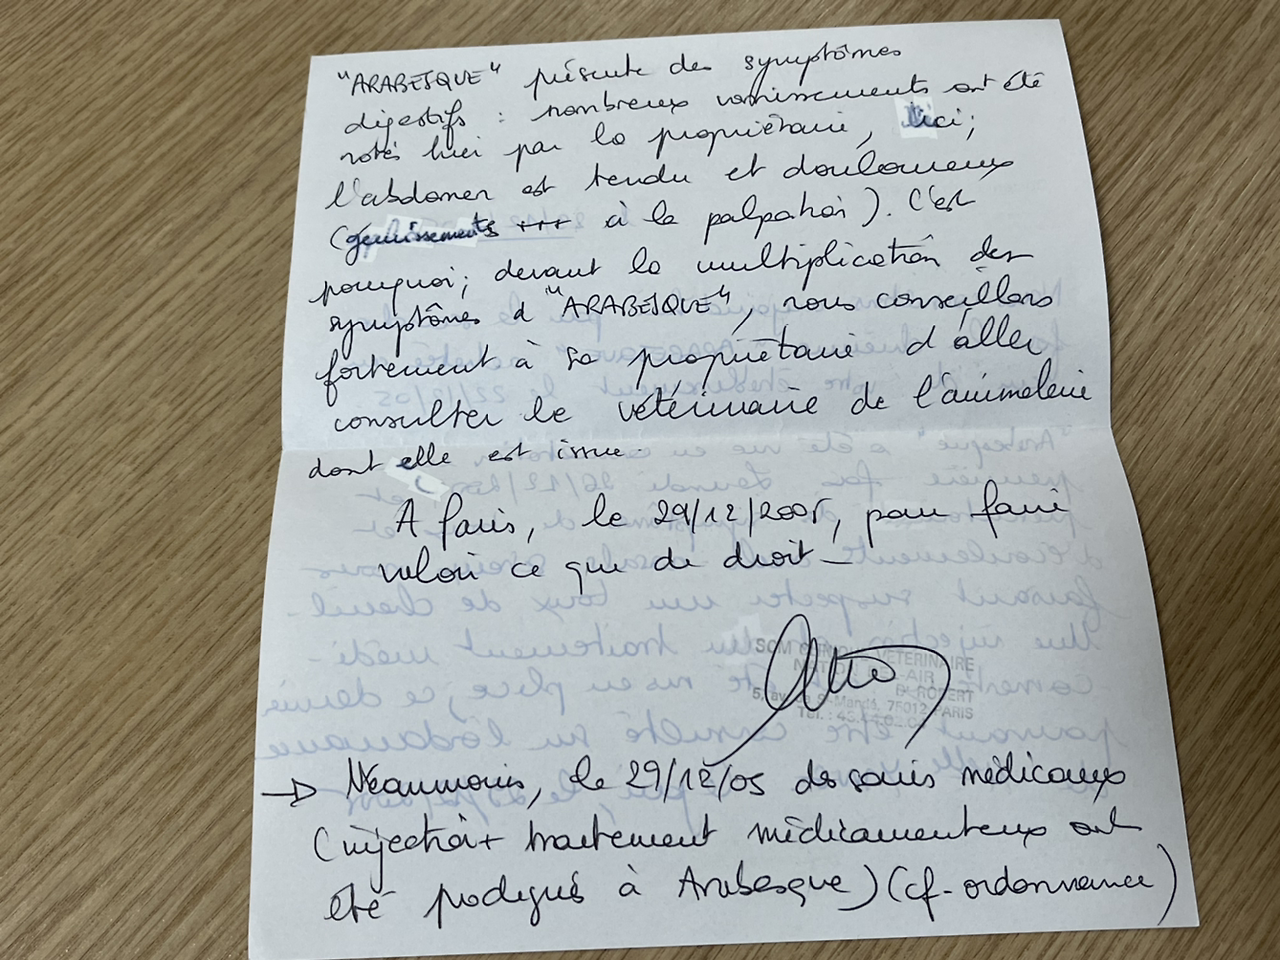 "ARABESQUE" présente des symptômes
digestifs : nombreux vomissements ont été
notés hier par la propriétaire, ici;
l'abdomen est tendu et douloureux
(gémissements +++ à la palpation). C'est
pourquoi; devant la multiplication des
symptômes d'"ARABESQUE", nous conseillons
fortement à sa propriétaire d'aller
consulter le vétérinaire de l'animalerie
dont elle est issue.
A Paris, le 29/12/2005, pour faire
valoir ce que de droit -
VETERINAIRE
Dr ROBERT
75012 PARIS
→ Néanmoins, le 29/12/05 des soins médicaux
(injection + traitement médicamenteux ont
été prodigués à Arabesque) (cf-ordonnance)